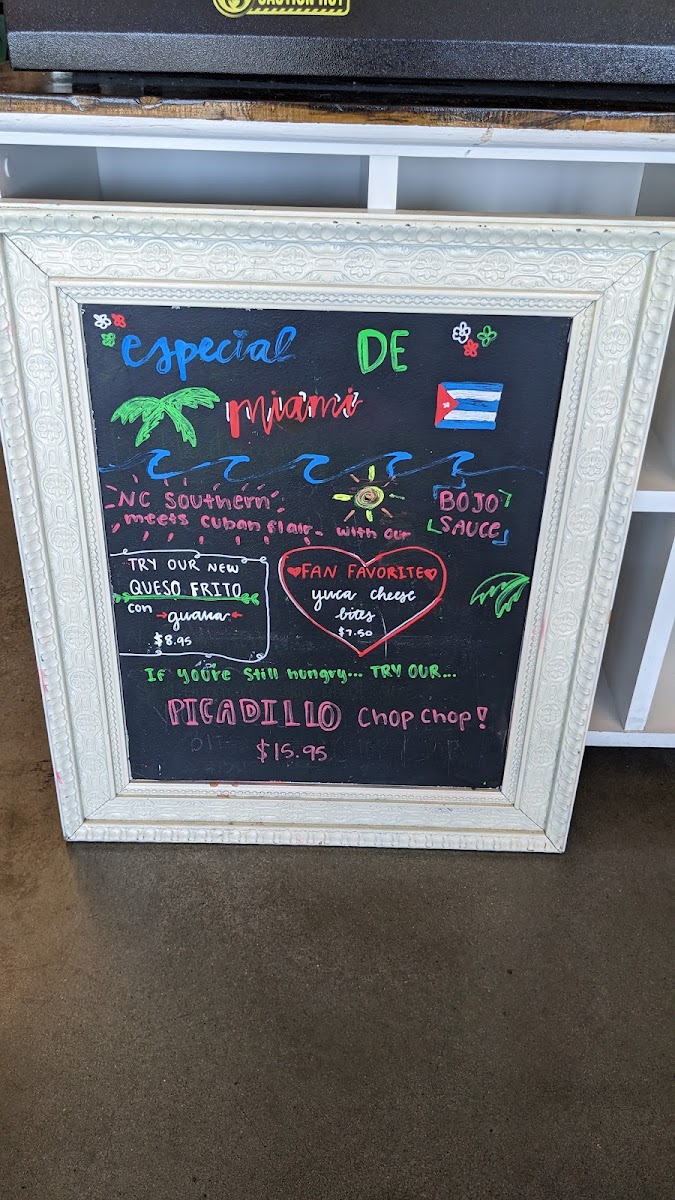 CAUTION HOT
especial DE
miami
NC Southern
meets cuban flair - with our
BOJO
SAUCE
TRY OUR NEW
QUESO FRITO
con guava
$8.95
FAN FAVORITE
yuca cheese
bites
$7.50
If you're still hungry... TRY OUR...
PICADILLO Chop Chop!
$15.95